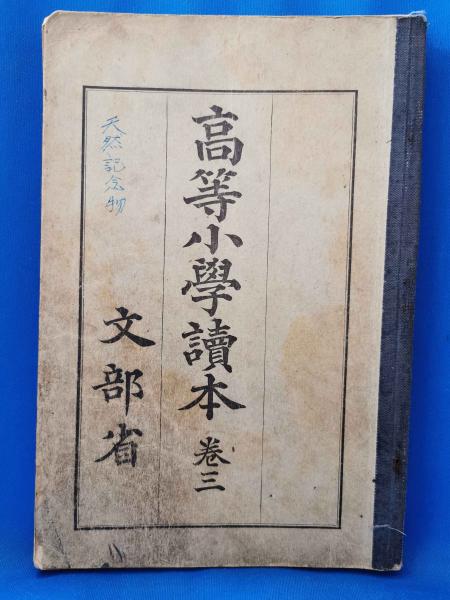 高等小學讀本 卷三
天然記念物
文部省